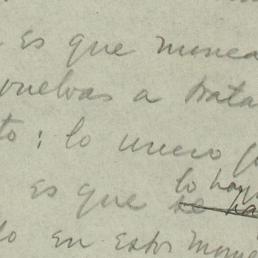 es que nunca
vuelvas a trata
to; lo unico
lo haya
es que se ha
do en estos mome